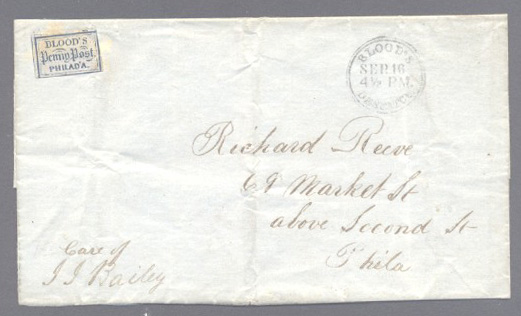 BLOOD'S
Penny Post
PHILAD'A.
BLOOD'S
SEP 16
4½ PM.
DESPATCH
Richard Reeve
69 Market St
above Second St
Phila
Care of
J J Bailey